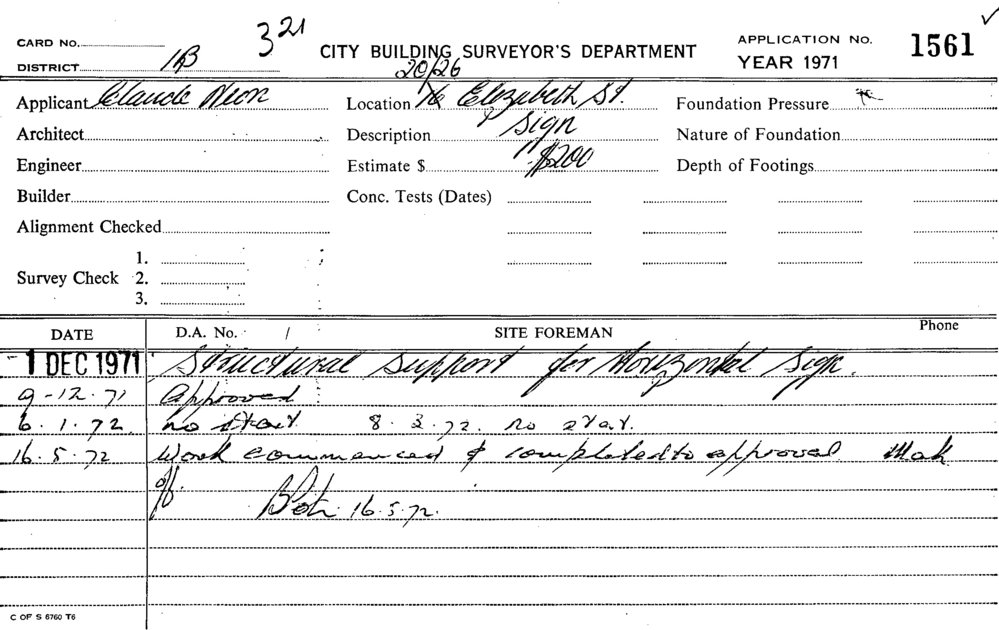 CARD No.
321
CITY BUILDING SURVEYOR'S DEPARTMENT
APPLICATION No. 1561
DISTRICT 1B
YEAR 1971
20/26
Applicant Claude Neon
Location Elizabeth St.
Foundation Pressure
Architect
Description Sign
Nature of Foundation
Engineer
Estimate $ $200
Depth of Footings
Builder
Conc. Tests (Dates)
Alignment Checked
1.
Survey Check 2.
3.
DATE D.A. No. / SITE FOREMAN Phone
- 1 DEC 1971 Structural support for Horizontal Sign.
9-12.71 Approved
6.1.72 no start 8.3.72. no start.
16.5.72 Work commenced & completed to approval
16.5.72.
C OF S 6760 T6